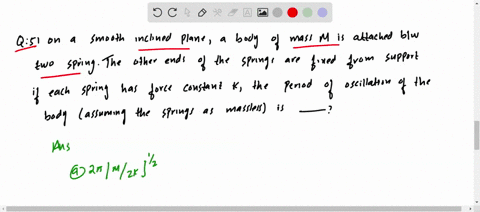 Q:51 on a smooth inclined plane, a body of mass M is attached b/w
two spring. The other ends of the springs are fixed from support
if each spring has force constant K, the period of oscillation of the
body (assuming the springs as massless) is ___?
Ans
(a) 2π [M/2K]^1/2